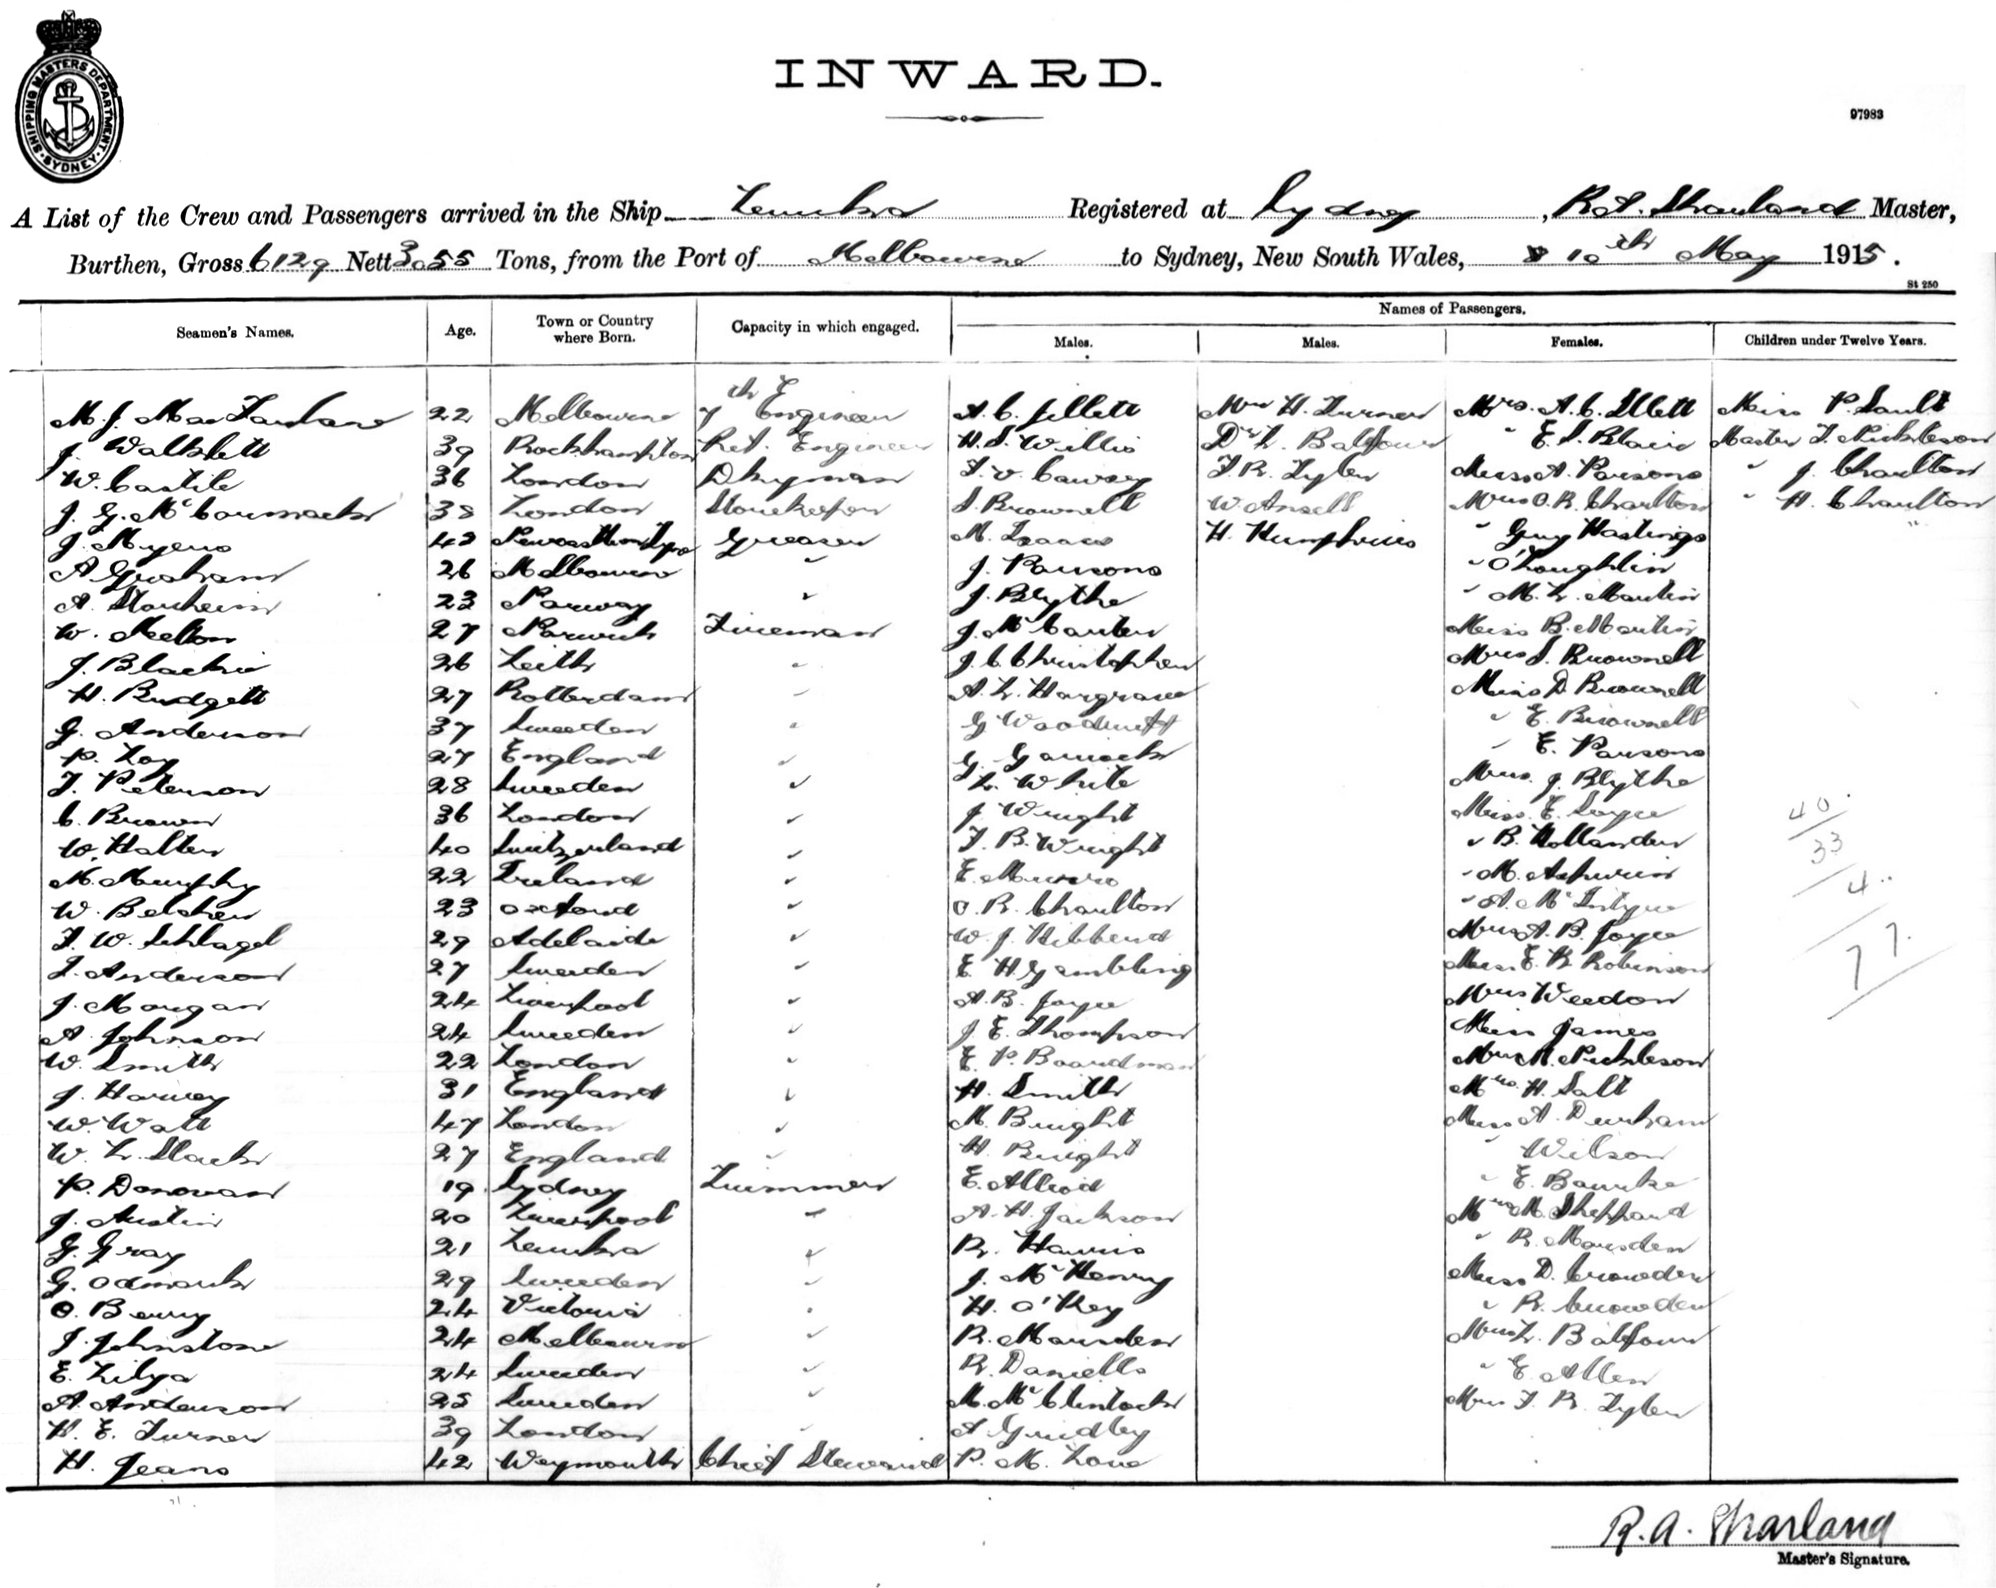 SHIPPING MASTERS DEPARTMENT
SYDNEY
INWARD.
97983
A List of the Crew and Passengers arrived in the Ship Zealandia Registered at Sydney, Master,
Burthen, Gross 6129 Nett 3055 Tons, from the Port of Melbourne to Sydney, New South Wales, 10th May 1915.
St 250
Seamen's Names. Age. Town or Country where Born. Capacity in which engaged. Names of Passengers.
Males. Males. Females. Children under Twelve Years.
M. J. MacFarlane 22 Melbourne 7th Engineer A. C. Illett Mrs H. Turner Mrs. A. C. Illett Miss P. Sault
J. Walklett 39 Rockhampton Ref. Engineer H. S. Willis Dr L. Balfour " E. S. Blair Master F. Nickleson
W. Castile 36 London Dkyman F. V. Cawsey F. R. Tyler Miss A. Parsons " J. Charlton
J. G. McCormack 38 London Storekeeper S. Brownell W Ansell Mrs O. R. Charlton " H. Charlton
J. Myers 42 Newcastle on Tyne Greaser M. Isaacs H. Humphries " Guy Hastings
A Graham 26 Melbourne " J. Parsons " O'Loughlin
A. 23 Norway " J. Blythe " M. L. Martin
W. Melton 27 Norwich Fireman J. McCarter Miss B. Martin
J. Blackie 26 Leith " J. C. Christopher Mrs S. Brownell
H. Budgett 27 Rotterdam " A. L. Hargrave Miss D Brownell
G. Anderson 37 Sweeden " G Woodruff " E. Brownell
P. Loy 27 England " G. Garrick " E. Parsons
F. Peterson 28 Sweeden " L. White Mrs. J. Blythe
C. Brown 36 London " J. Wright Miss. E. Joyce 40
W. Halter 40 Switzerland " F. B. Wright " B. Hollander 33
M. Murphy 22 Ireland " E. Munro " M. Ashwin 4
W. Belcher 23 Oxford " O. R. Charlton " A. McIntyre
F. W. Schlagel 29 Adelaide " W. J. Hibberd Mrs A. B. Joyce 77.
F. Anderson 27 Sweeden " E. H. Gambling Miss E. R. Robinson
J. Morgan 24 Liverpool " A. B. Joyce Mrs Weedon
A. Johnson 24 Sweeden " J. E. Thompson Miss James
W. Smith 22 London " E. P. Boardman Mrs M. Nickleson
J. Harvey 31 England " H. Smith Mrs. H. Salt
W. Watt 47 London " M. Bright Miss A. Denham
W. L. Slack 27 England " H. Bright " Wilson
P. Donovan 19 Sydney Trimmer E. Allred " E. Bourke
J. Austin 20 Liverpool " A. H. Jackson Mrs M. Sheppard
G. Gray 21 " R. Harris " R. Marsden
G. Odmark 29 Sweeden " J. McHenry Miss D. Crowden
O. Berry 24 Victoria " H. O'Key " R. Crowden
J. Johnstone 24 Melbourne " R. Marsden Mrs L. Balfour
E. Lilya 24 Sweeden " R. Daniells " E. Allen
A. Anderson 25 Sweeden " M. McClintock Mrs F. R. Tyler
H. E. Turner 39 London " A Gridley
H. Jeans 42 Weymouth Chief Steward P. M. Lane
R. A. Sharland
Master's Signature.